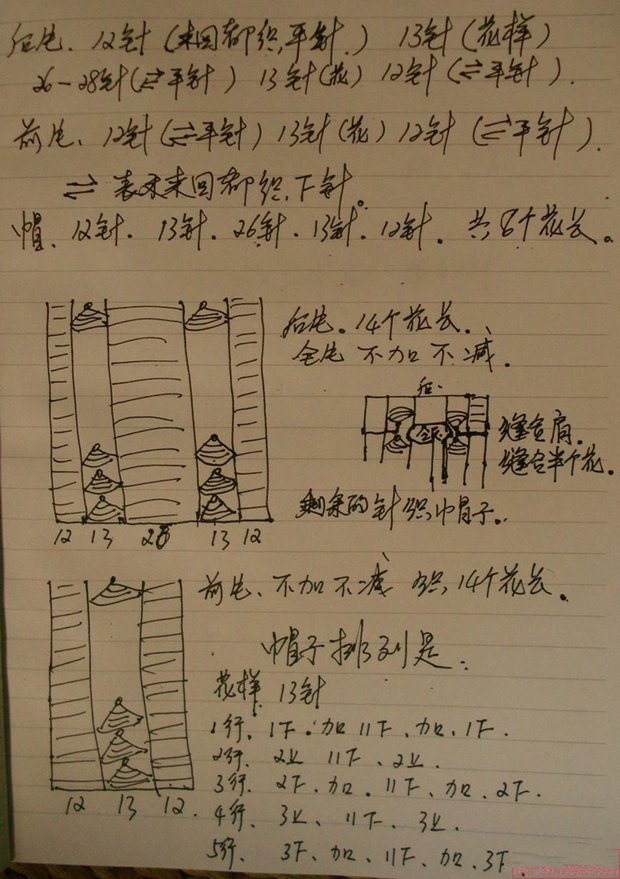 后片、12针(来回都织平针、) 13针(花样)
26-28针(⇌平针) 13针(花) 12针(⇌平针).
前片、12针(⇌平针) 13针(花) 12针(⇌平针).
⇌ 表示来回都织下针。
帽、12针. 13针. 26针. 13针. 12针。共8个花长。
后片。14个花长、
全片 不加 不减.
后
缝合肩.
缝合半个花.
剩余的针织帽子.
12 13 26 13 12
前片、不加不减 织14个花长。
帽子排列是.
花样 13针
1行、1下. 加 11下、加、1下.
2行、2上 11下、2上.
3行、2下、加. 11下、加、2下.
4行、3上、11下、3上.
5行、3下、加、11下、加、3下
12 13 12.